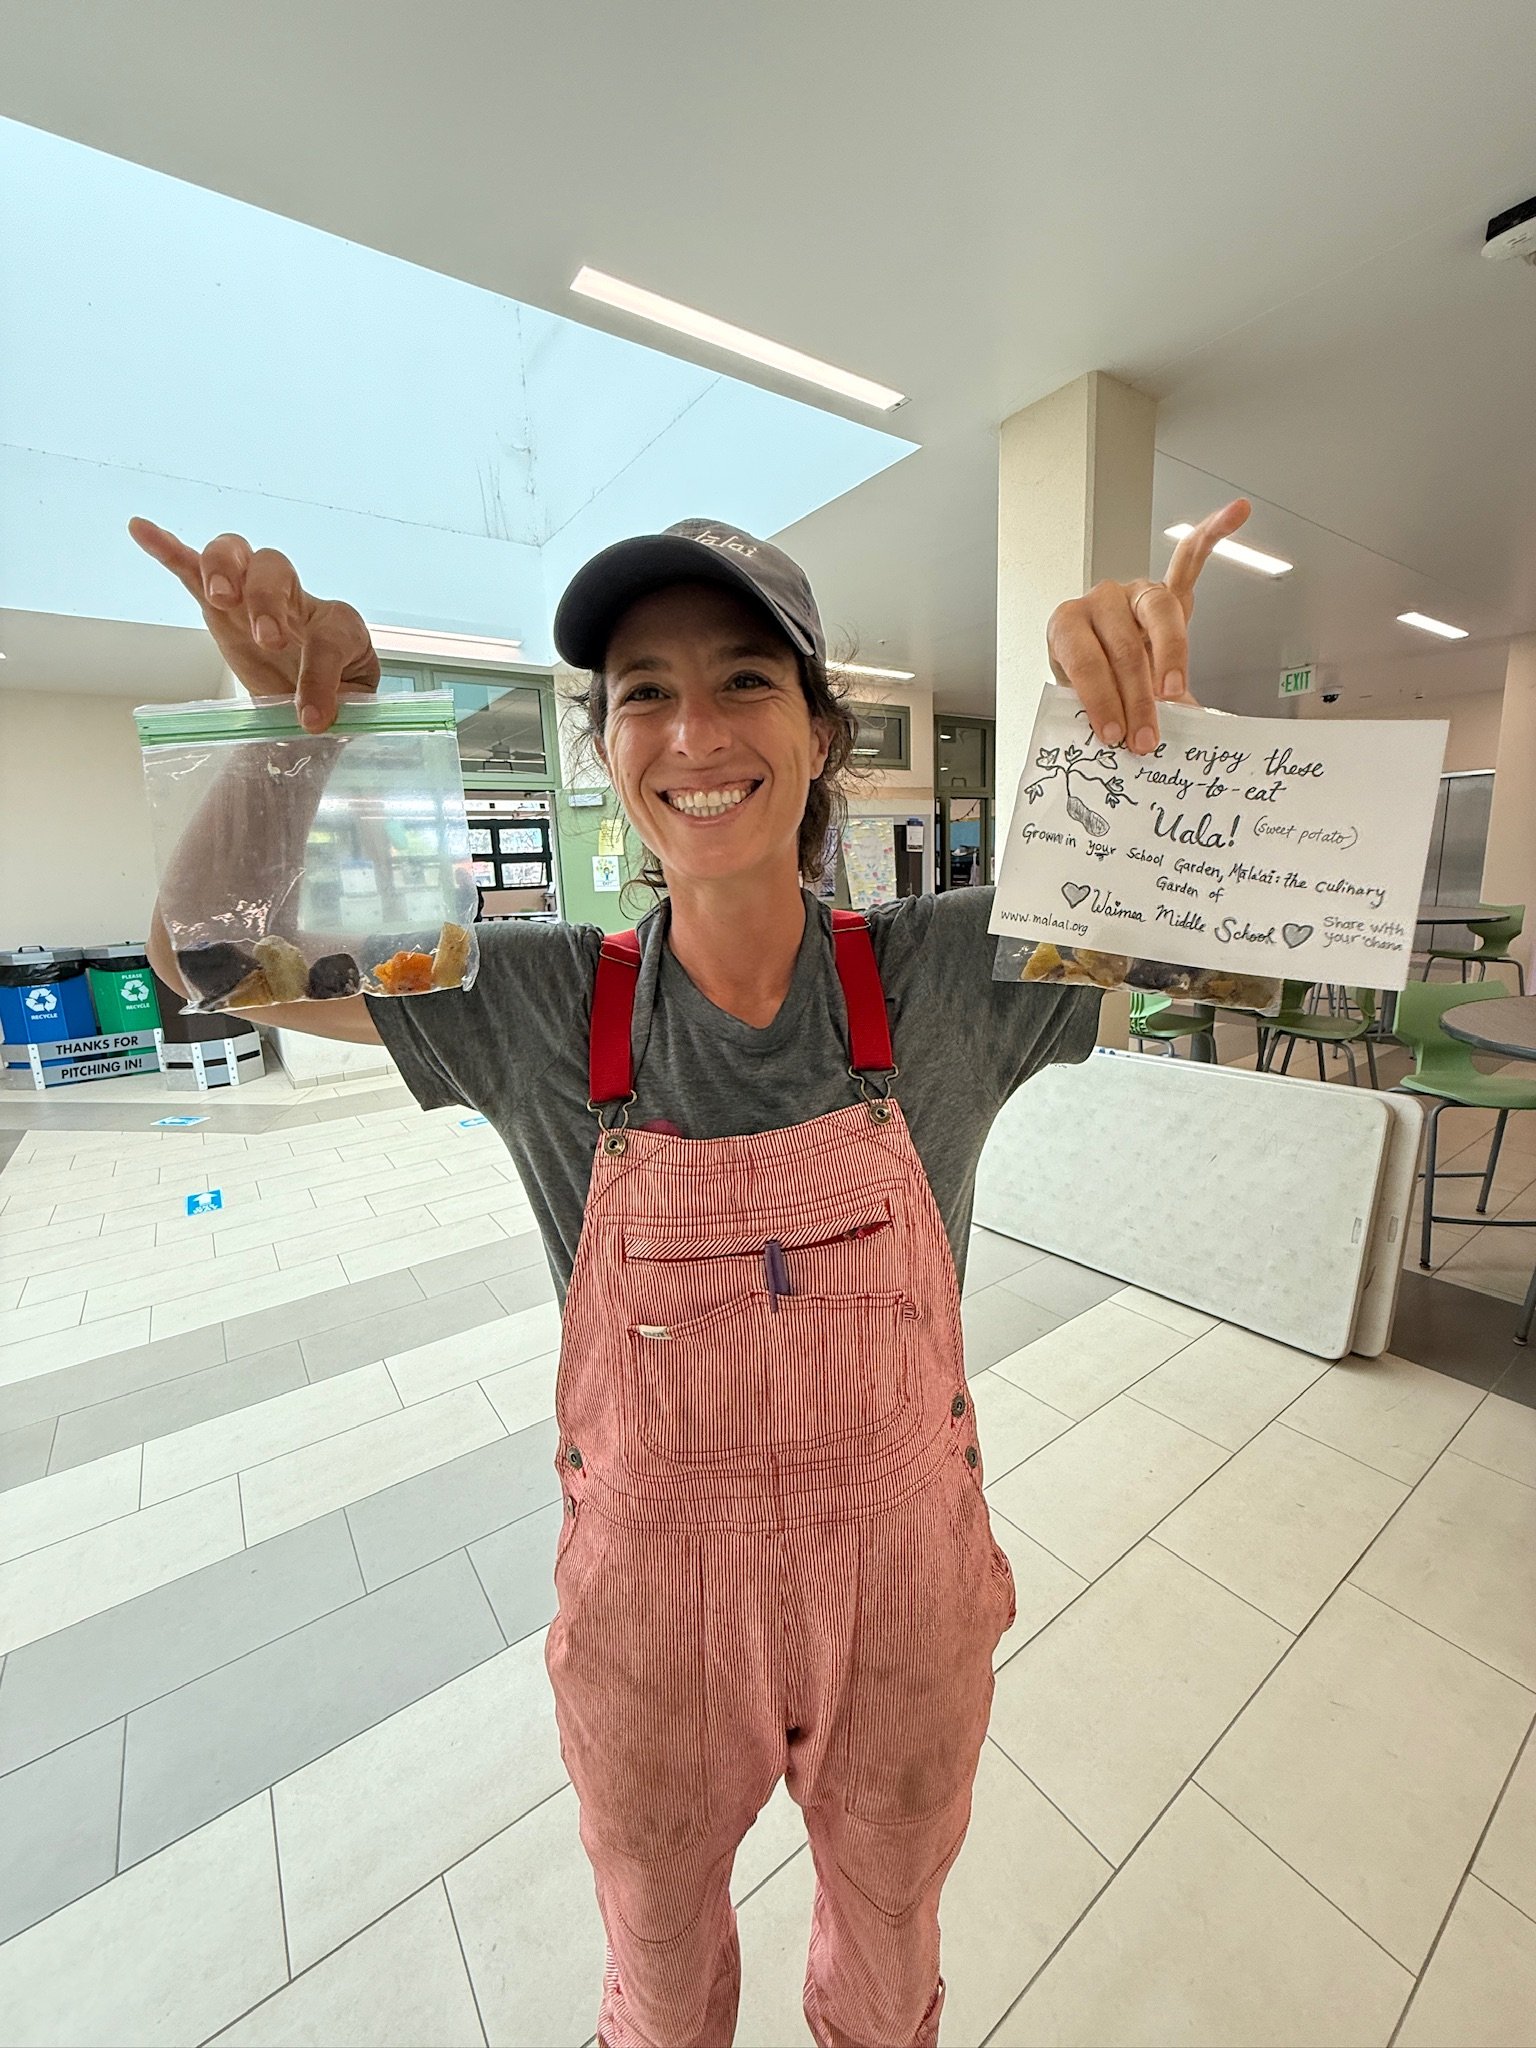 EXIT
enjoy these
ready-to-eat
'Uala! (sweet potato)
Grown in your School Garden, Māla'ai: the culinary
Garden of
Waimea Middle School
www.malaai.org
Share with
your 'ohana
RECYCLE
PLEASE
RECYCLE
THANKS FOR
PITCHING IN!